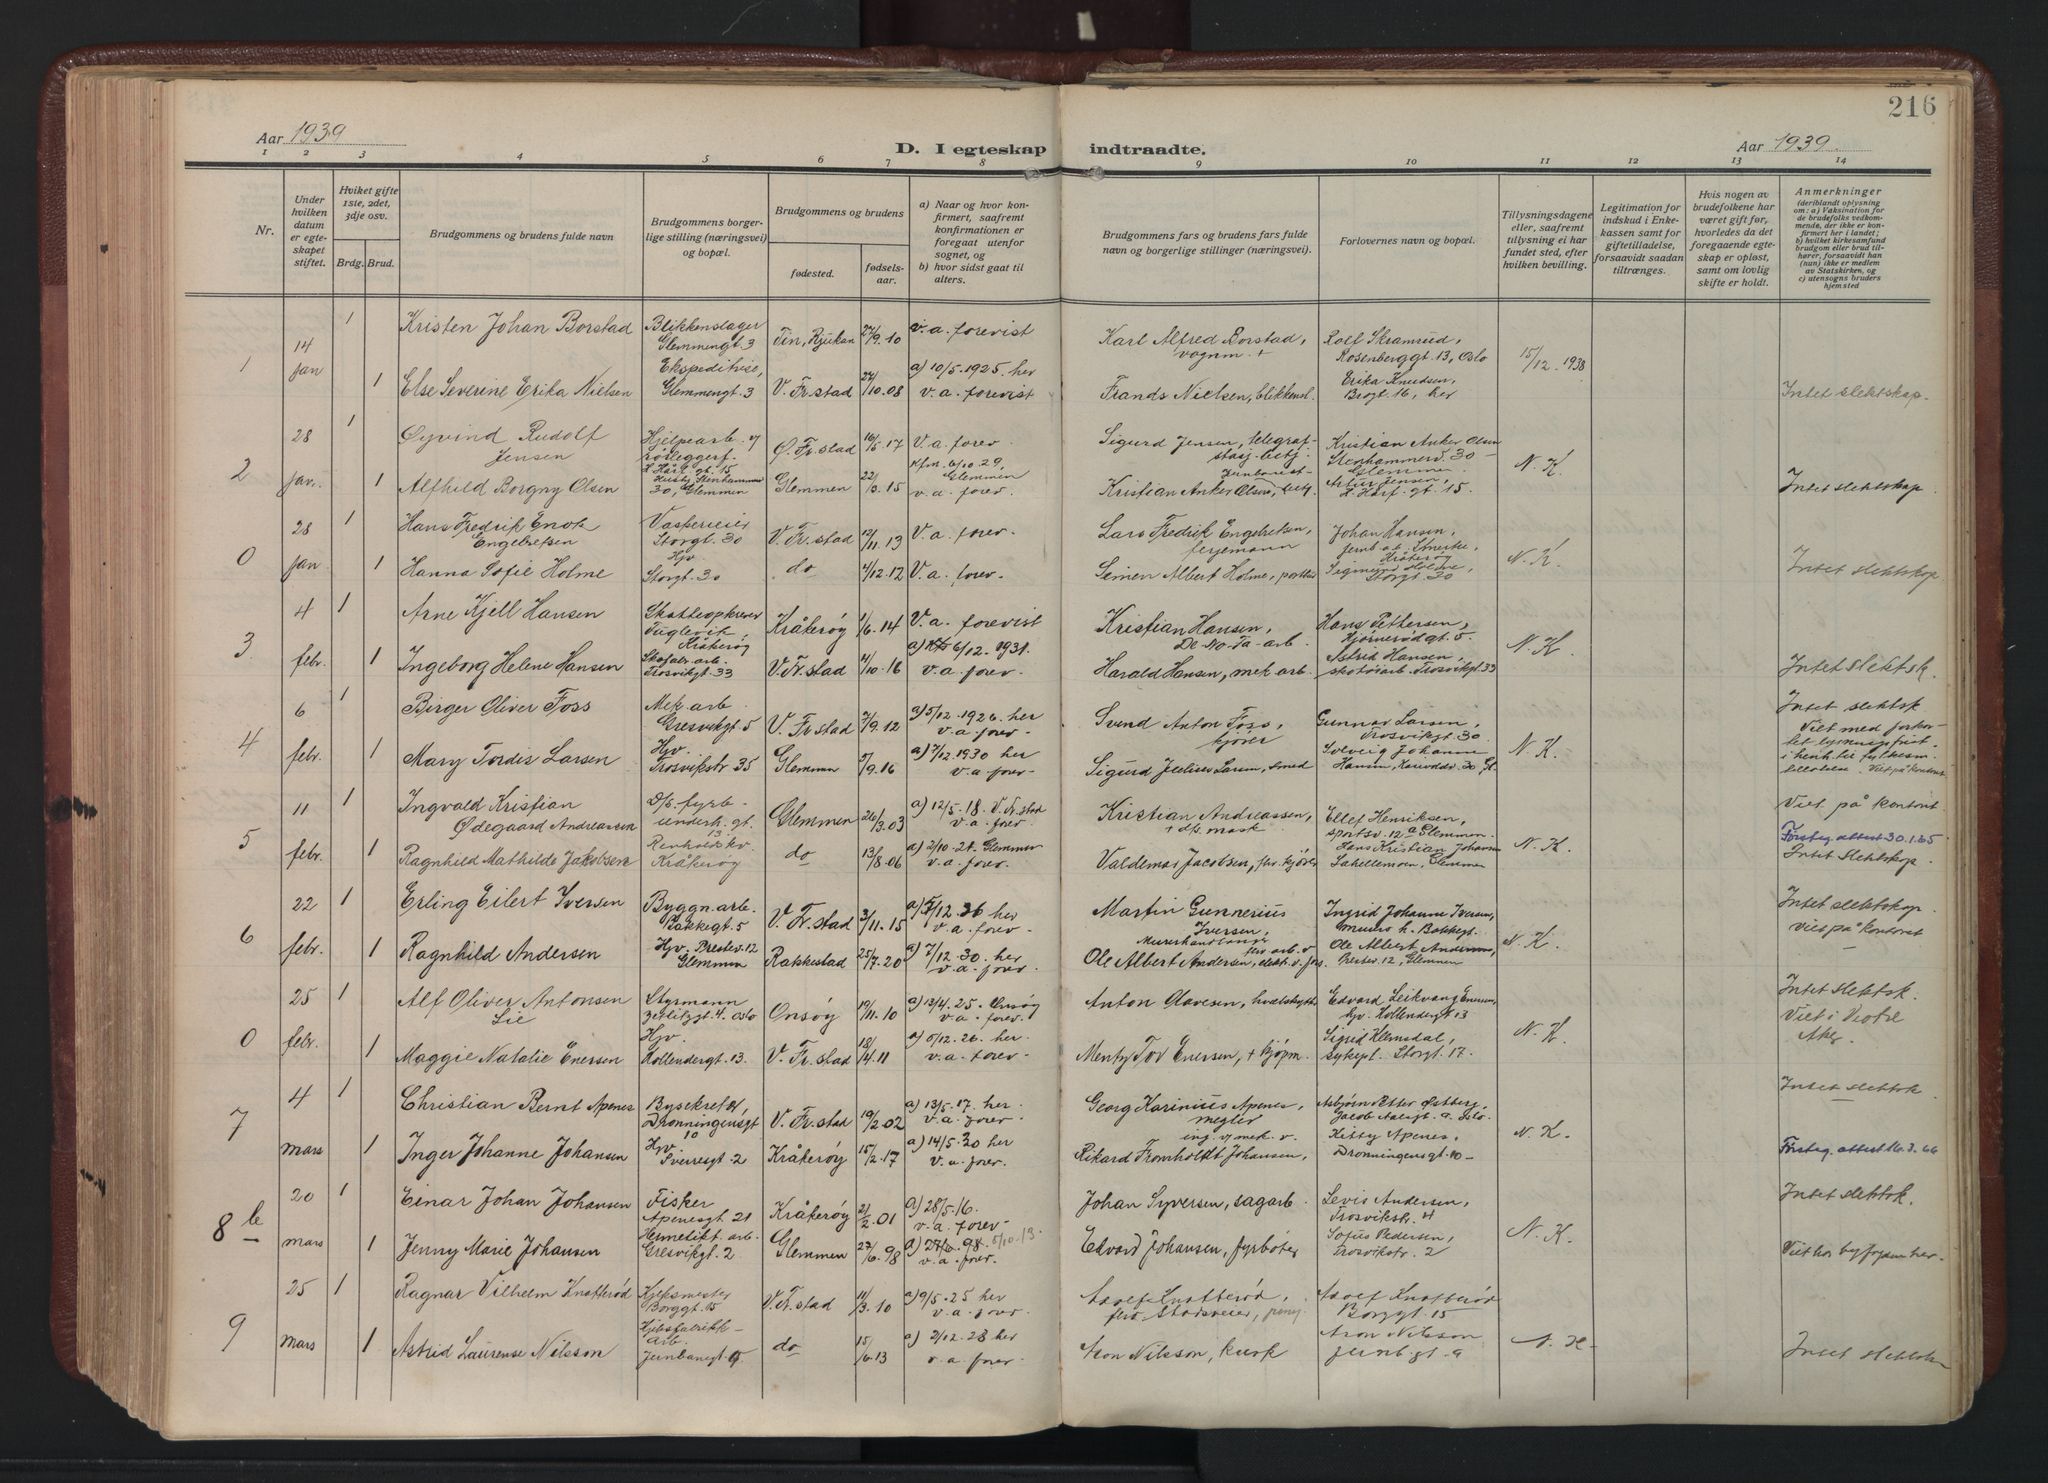 216
Aar 1939
D. I egteskap indtraadte.
Aar 1939.
1 2 3 4 5 6 7 8 9 10 11 12 13 14
Nr.
Under hvilken datum er egteskapet stiftet.
Hviket gifte 1ste, 2det, 3dje osv.
Brdg. Brud.
Brudgommens og brudens fulde navn
Brudgommens borgerlige stilling (næringsvei) og bopæl.
Brudgommens og brudens
fødested.
fødselsaar.
a) Naar og hvor konfirmert, saafremt konfirmationen er foregaat utenfor sognet, og
b) hvor sidst gaat til alters.
Brudgommens fars og brudens fars fulde navn og borgerlige stillinger (næringsvei).
Forlovernes navn og bopæl.
Tillysningsdagene eller, saafremt tillysning ei har fundet sted, efter hvilken bevilling.
Legitimation for indskud i Enkekassen samt for giftetilladelse, forsaavidt saadan tiltrænges.
Hvis nogen av brudefolkene har været gift før, hvorledes da det foregaaende egteskap er opløst, samt om lovlig skifte er holdt.
Anmerkninger
(deriblandt oplysning om: a) Vaksination for de brudefolks vedkommende, der ikke er konfirmert her i landet; b) hvilket kirkesamfund brudgom eller brud tilhører, forsaavidt han (hun) ikke er medlem av Statskirken, og c) utensogns bruders hjemsted
1
14 jan
1 Kristen Johan Borstad Blikkenslager Glemmengt. 3 Tin, Rjukan 27/9.10 v.a. forevist Karl Alfred Borstad, vognm. + Rolf Skramrud, Rosenberggt. 13, Oslo 15/12. 1938
1 Else Severine Erika Nielsen Ekspeditrise, Glemmengt. 3 V. Fr.stad 27/10.08 a) 10/5.1925. her v.a. forevist Frands Nielsen, blikkensl. Erika Knudsen, Brogt. 16, her Intet slektskap.
2
28 jan.
1 Øyvind Rudolf Jensen Hjelpearb. rørleggerf. gt. 15 Ø. Fr.stad 16/5.17 V.a. forev. Sigurd Jensen, telegrafstasj. betj. Kristian Anker Olsen Stenhammerv. 30 Glemmen N.K.
1 Alfhild Borgny Olsen Stenhammer 30, Glemmen Glemmen 22/3.15 Kfm. 6/10.29, Glemmen v.a. forev. Kristian Anker Olsen, Artur Jensen, gt. 15. Intet slektskap
0
28 jan
1 Hans Fredrik Enok Engebretsen Vaskerieier Storgt. 30 V. Fr.stad 12/11.13 V.a. forev. Lars Fredrik Engebretsen, ferjemann Johan Hansen, Kråkerøy N.K.
1 Hanna Sofie Holme Hjv. Storgt. 30 do 4/12.12 V.a. forev. Seinen Albert Holme, Sigmund Holme, Storgt. 30 Intet slektskap
3
4 febr.
1 Arne Kjell Hansen Skatteopkrever Fuglevik, Kråkerøy Kråkerøy 1/6.14 V.a. forevist Kristian Hansen, De-No-Fa-arb. Hans Pettersen, Hjørnerødgt. 5. N.K.
1 Ingeborg Helene Hansen Skofabr. arb. Trosvikgt. 33 V. Fr.stad 4/10.16 a) 6/12.1931. v.a. forev. Harald Hansen, mek. arb. Astrid Hansen, skotøiarb. Trosvikgt. 33 Intet slektsk.
4
6 febr.
1 Birger Oliver Foss Mek. arb. Gresvikgt. 5 V. Fr.stad 7/9.12 a) 5/12.1926. her v.a. forev. Svend Anton Foss, kjører Gunnar Larsen, Trosvikgt. 30. N.K. Intet slektsk
1 Mary Tordis Larsen Hjv. Trosvikstr 35 Glemmen 5/9.16 a) 7/12.1930 her v.a. forev. Sigurd Larsen, smed Solveig Johanne Hansen, 30 Gl. Viet med forkortet lysningsfrist. i henh. til fylkesm. tilladelse. Viet på kontoret
5
11 febr.
1 Ingvald Kristian Ødegaard Andreassen D/s. fyrb. Glemmen 26/3.03 a) 12/5.18. V. Fr.stad v.a. forev. Kristian Andreassen, + Ellef Henriksen, sportsv. 12 a Glemmen. N.K. Viet på kontoret
1 Ragnhild Mathilde Jakobsen Kråkerøy do 13/8.06 a) 2/10.21. Glemmen v.a. forev. Valdemar Jacobsen, kjører Hans Kristian Johansen Glemmen Førsteg. attest 30.1.65 Intet slektskap
6
22 febr.
1 Erling Eilert Iversen Byggn. arb. Bakkegt. 5 V. Fr.stad 3/11.15 a) 7/12.36 her v.a. forev. Martin Gunnerius Iversen, Murerhandlanger Ingrid Johanne Iversen, Bakkegt. N.K. Intet slektskap.
1 Ragnhild Andersen Hjv. Prestev. 12 Glemmen Rakkestad 25/7.20 a) 7/12.30. her v.a. forev. Ole Albert Andersen, Ole Albert Andersen, Prestev. 12, Glemmen Viet på kontoret
0
25 febr.
1 Alf Oliver Antonsen Lie Styrmann Zetlitzgt. 4. Oslo Onsøy 19/11.10 a) 13/4.25. Onsøy v.a. forev. Anton Olavesen, hvalskytt. Edvard Leikvang Enersen, Hollendergt. 13 N.K. Intet slektsk.
1 Maggie Natalie Enersen Hjv. Hollendergt. 13. V. Fr.stad 18/4.11 a) 5/12.26. her v.a. forev. Menty Tov Enersen, + kjøpm. Sigrid Klemsdal, sykepl. Storgt. 17. Viet i Vestre Aker.
7
4 mars
1 Christian Bernt Apenes Bysekretær, Dronningensgt 10 V. Fr.stad 19/2.02 a) 13/5.17. her v.a. forev. Georg Karinius Apenes, megler Asbjørn Petter Østberg, Oslo N.K. Intet slektsk.
1 Inger Johanne Johansen Hjv. Sverresgt. 2 Kråkerøy 15/2.17 a) 14/5.30 her v.a. forev. ing. v/ mek. v. Rikard Fromholdt Johansen, Kitty Apenes, Dronningensgt. 10 Førsteg. attest 16.3.66
8 b
20 mars
1 Einar Johan Johansen Fisker Apenesgt. 21 Kråkerøy 21/2.01 a) 28/5.16. v.a. forev. Johan Syversen, sagarb. Levis Andersen, Trosvikstr. 4 N.K. Intet slektsk.
1 Jenny Marie Johansen Hermetikf. arb. Gresvikgt. 2 Glemmen 27/6.98 a) 27/6.98. 5/10.13. v.a. forev. Edvard Johansen, fyrbøter Sofus Pedersen, Trosvikstr. 2 Viet hos byfogden her.
9
25 mars
1 Ragnar Vilhelm Knatterød Kjeksmester Borggt. 15 V. Fr.stad 11/3.10 a) 9/5.25 her v.a. forev. Adolf Knatterød, Adolf Knatterød Borggt. 15 N.K.
1 Astrid Laurense Nilsson arb Jernbanegt. 9 do 15/6.13 a) 2/12.28 her v.a. forev. Aron Nilsson, kusk Aron Nilsson Jernb.gt. 9 Intet slektsk